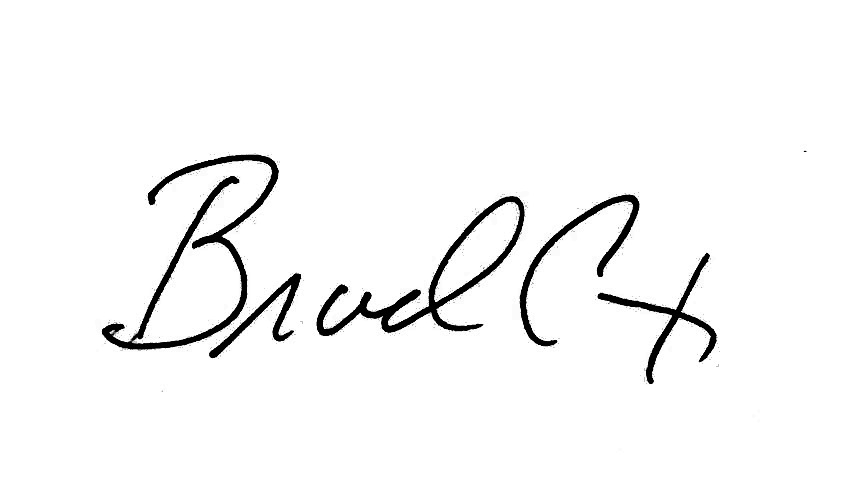 Brad Cox